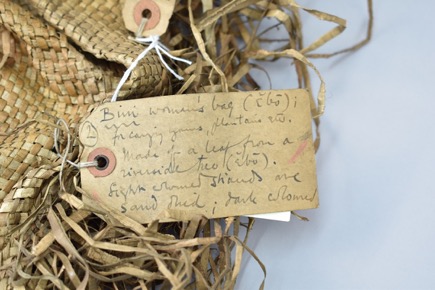 Bini woman's bag (ĕbŏ);
2) for
carrying yams, plantains etc.
Made of a leaf from a
riverside tree (ĕbŏ).
Light coloured strands are
sand dried; dark coloured